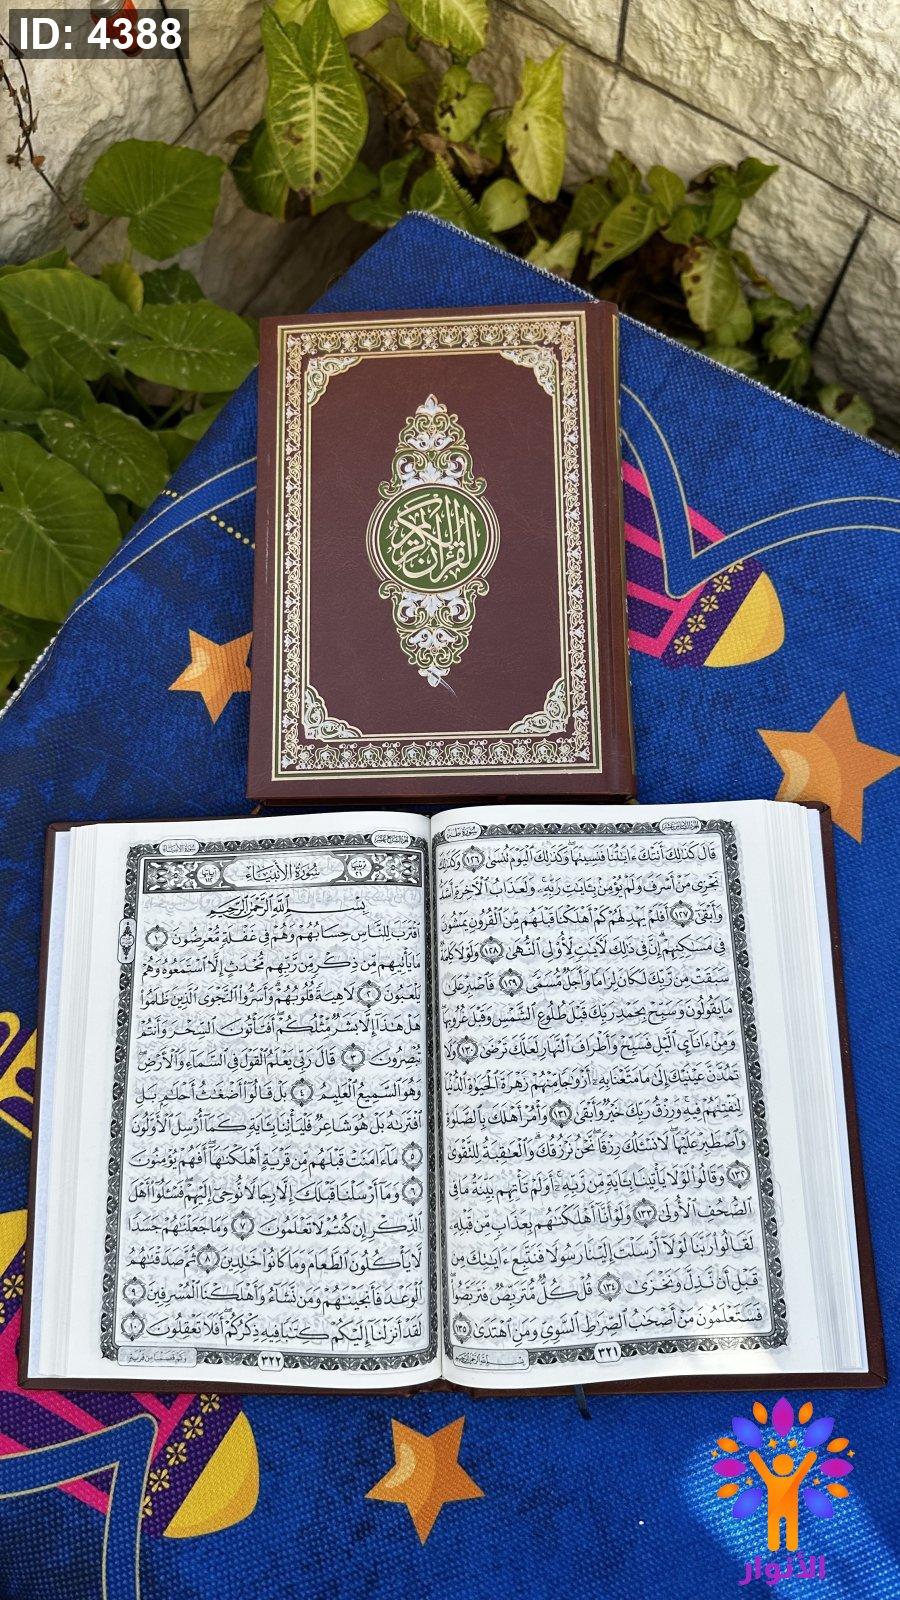 ID: 4388
القرآن الكريم
سورة طه
قال كذلك أتتك ءايتنا فنسيتها وكذلك اليوم تنسى ١٢٦ وكذلك
نجزى من أسرف ولم يؤمن بـٔايت ربه ولعذاب الأخرة أشد
وأبقى ١٢٧ أفلم يهد لهم كم أهلكنا قبلهم من القرون يمشون
فى مسكنهم إن فى ذلك لأيت لأولى النهى ١٢٨ ولولا كلمة
سبقت من ربك لكان لزاما وأجل مسمى ١٢٩ فاصبر على
ما يقولون وسبح بحمد ربك قبل طلوع الشمس وقبل غروبها
ومن ءانآئ اليل فسبح وأطراف النهار لعلك ترضى ١٣٠ ولا
تمدن عينيك إلى ما متعنا به أزوجا منهم زهرة الحيوة الدنيا
لنفتنهم فيه ورزق ربك خير وأبقى ١٣١ وأمر أهلك بالصلوة
واصطبر عليها لا نسـٔلك رزقا نحن نرزقك والعقبة للتقوى
١٣٢ وقالوا لولا يأتينا بـٔاية من ربه أولم تأتهم بينة ما فى
الصحف الأولى ١٣٣ ولو أنا أهلكنهم بعذاب من قبله
لقالوا ربنا لولا أرسلت إلينا رسولا فنتبع ءايتك من
قبل أن نذل ونخزى ١٣٤ قل كل متربص فتربصوا
فستعلمون من أصحب الصرط السوى ومن اهتدى ١٣٥
٣٢١
سورة الأنبياء
سورة الأنبياء
بسم الله الرحمن الرحيم
اقترب للناس حسابهم وهم فى غفلة معرضون ١
ما يأتيهم من ذكر من ربهم محدث إلا استمعوه وهم
يلعبون ٢ لاهية قلوبهم وأسروا النجوى الذين ظلموا
هل هذا إلا بشر مثلكم أفتأتون السحر وأنتم
تبصرون ٣ قال ربى يعلم القول فى السماء والأرض
وهو السميع العليم ٤ بل قالوا أضغث أحلم بل
افترىه بل هو شاعر فليأتنا بـٔاية كما أرسل الأولون
٥ ما ءامنت قبلهم من قرية أهلكنها أفهم يؤمنون
٦ وما أرسلنا قبلك إلا رجالا نوحى إليهم فسـٔلوا أهل
الذكر إن كنتم لا تعلمون ٧ وما جعلنهم جسدا
لا يأكلون الطعام وما كانوا خلدين ٨ ثم صدقنهم
الوعد فأنجينهم ومن نشاء وأهلكنا المسرفين ٩
لقد أنزلنا إليكم كتبا فيه ذكركم أفلا تعقلون ١٠
وكم قصمنا من قرية
٣٢٢
الأنوار